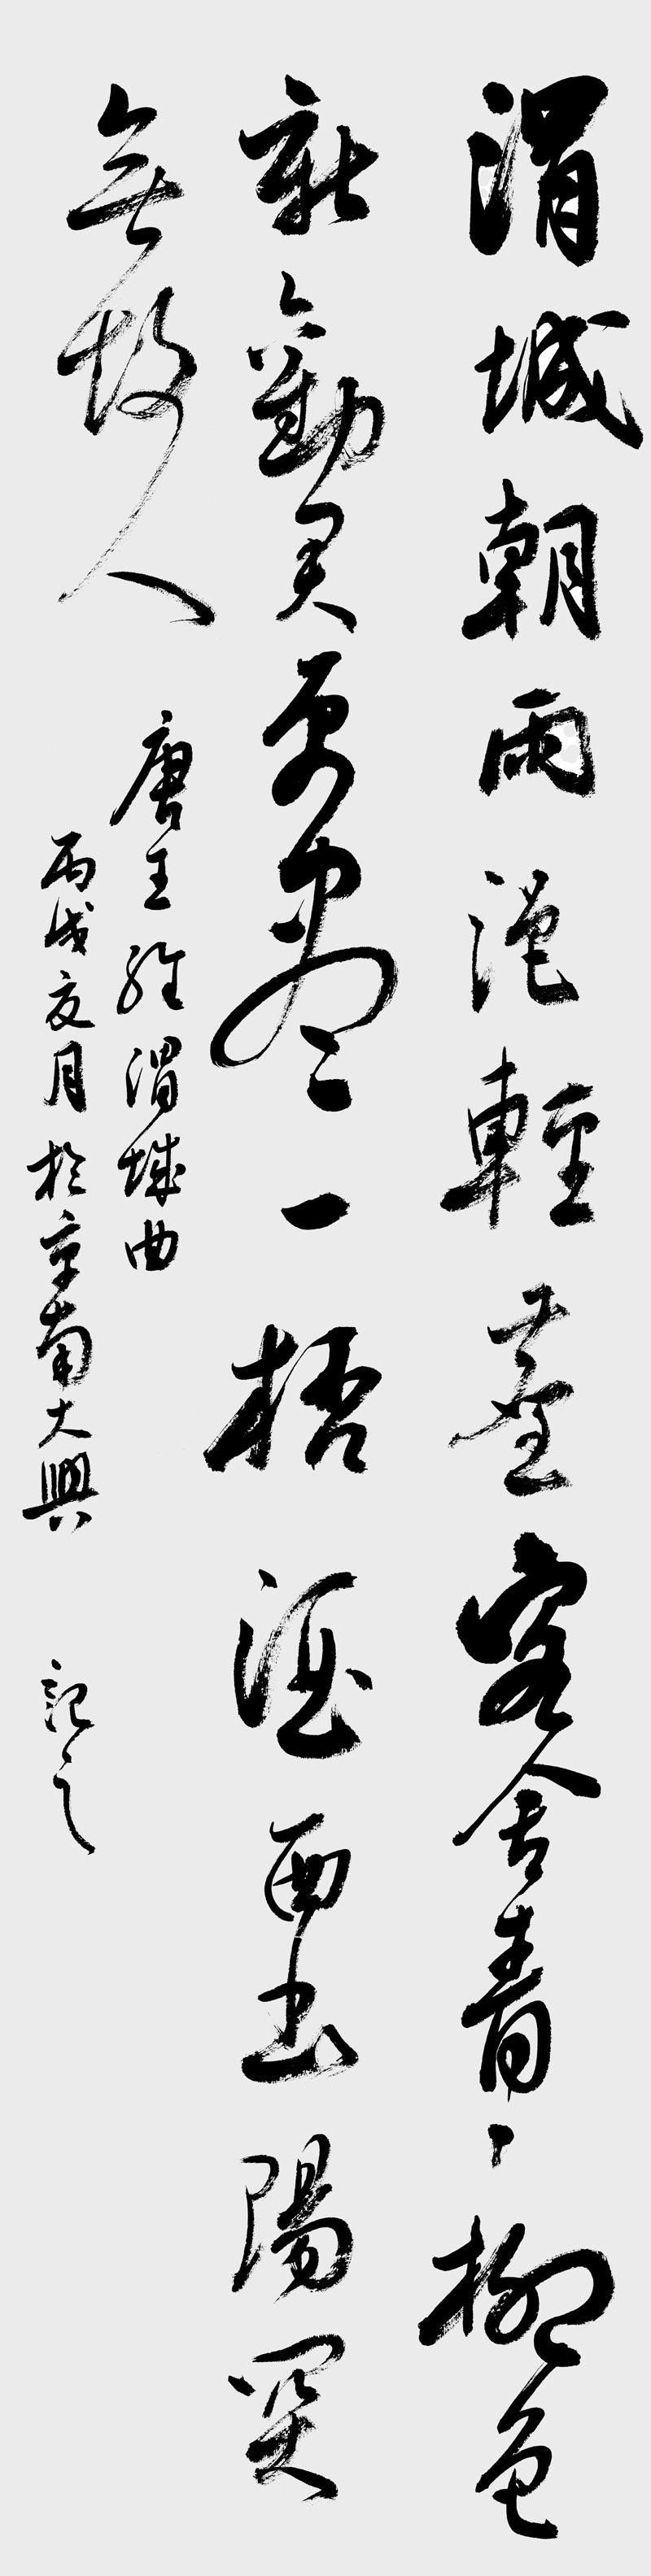 渭城朝雨浥輕塵客舍青々柳色
新勸君更盡一杯酒西出陽關
無故人
唐王維渭城曲
丙戌夏月於京南大興
記之